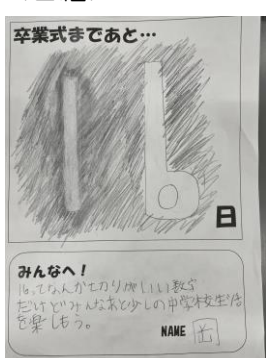 卒業式まであと…
16
日
みんなへ！
16ってなんかキリがいい数字
だけどみんなあと少しの中学校生活
を楽しもう。
NAME 岡